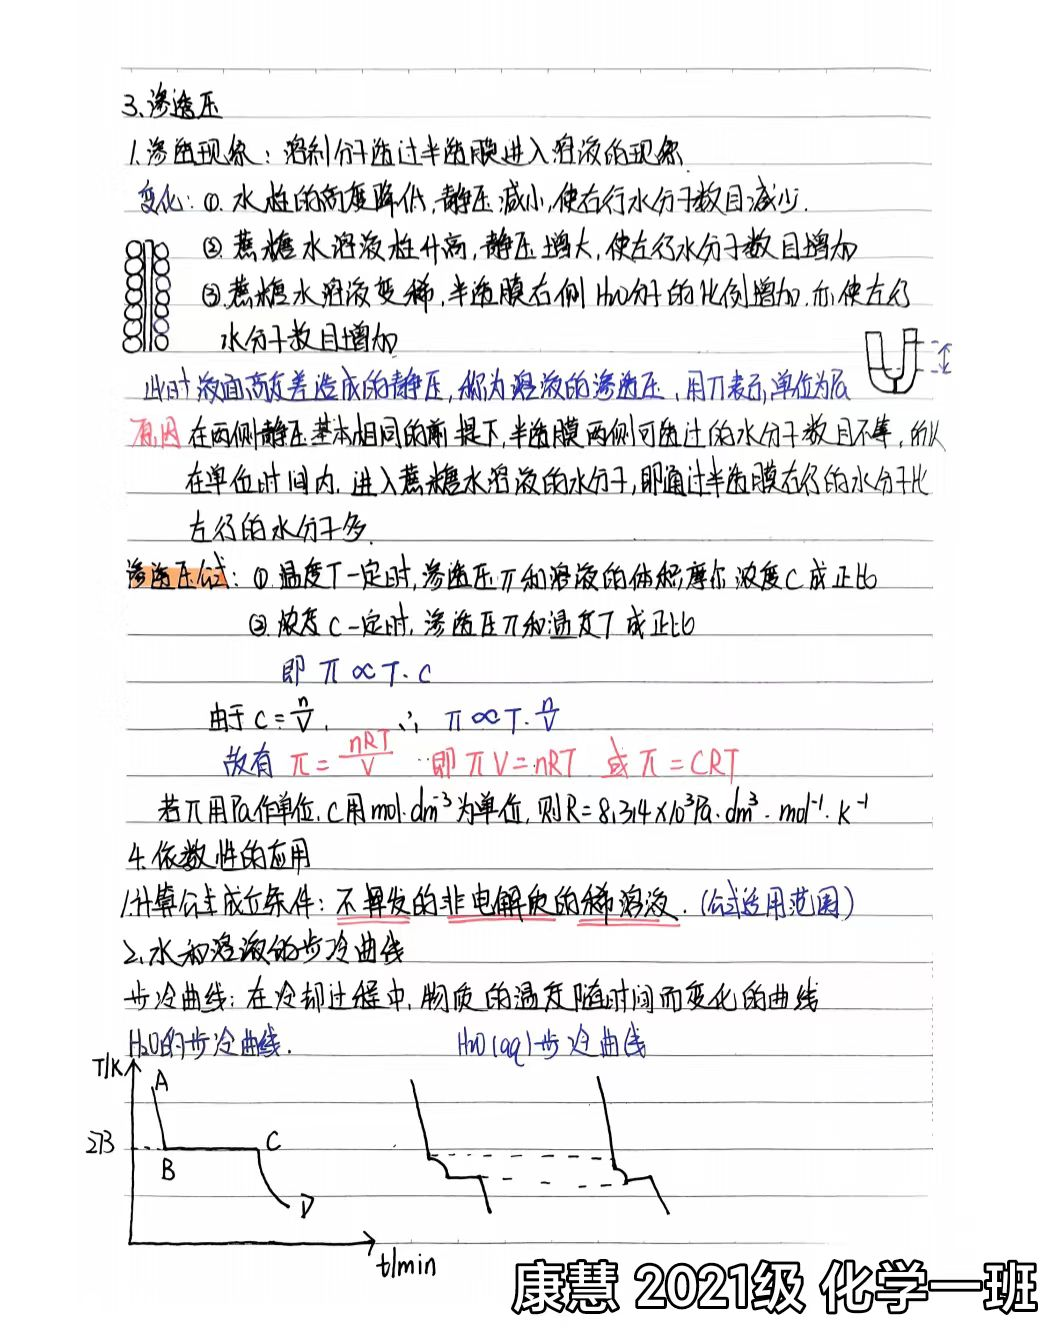 3、渗透压
1.渗透现象：溶剂分子透过半透膜进入溶液的现象.
变化：①. 水柱的高度降低，静压减小，使右行水分子数目减少.
②. 蔗糖水溶液柱升高，静压增大，使左行水分子数目增加
③. 蔗糖水溶液变稀，半透膜右侧H₂O分子的比例增加，亦使左行
水分子数目增加
此时液面高度差造成的静压，称为溶液的渗透压，用π表示，单位为Pa
原因 在两侧静压基本相同的前提下，半透膜两侧可透过的水分子数目不等，所以
在单位时间内，进入蔗糖水溶液的水分子，即通过半透膜右行的水分子比
左行的水分子多.
渗透压公式：①. 温度T一定时，渗透压π和溶液的体积摩尔浓度C成正比
②. 浓度C一定时，渗透压π和温度T成正比
即 π∝T·C
由于 C=n/V， ∴ π∝T·n/V
故有 π=nRT/V 即 πV=nRT 或π=CRT
若π用Pa作单位，C用mol·dm⁻³为单位，则R=8.314×10³Pa·dm³·mol⁻¹·K⁻¹
4.依数性的应用
1.计算公式成立条件：不挥发的非电解质的稀溶液.（公式适用范围）
2.水和溶液的步冷曲线
步冷曲线：在冷却过程中，物质的温度随时间而变化的曲线
H₂O的步冷曲线. H₂O(aq)步冷曲线
T/K
A
273
B
C
D
t/min
康慧 2021级 化学一班